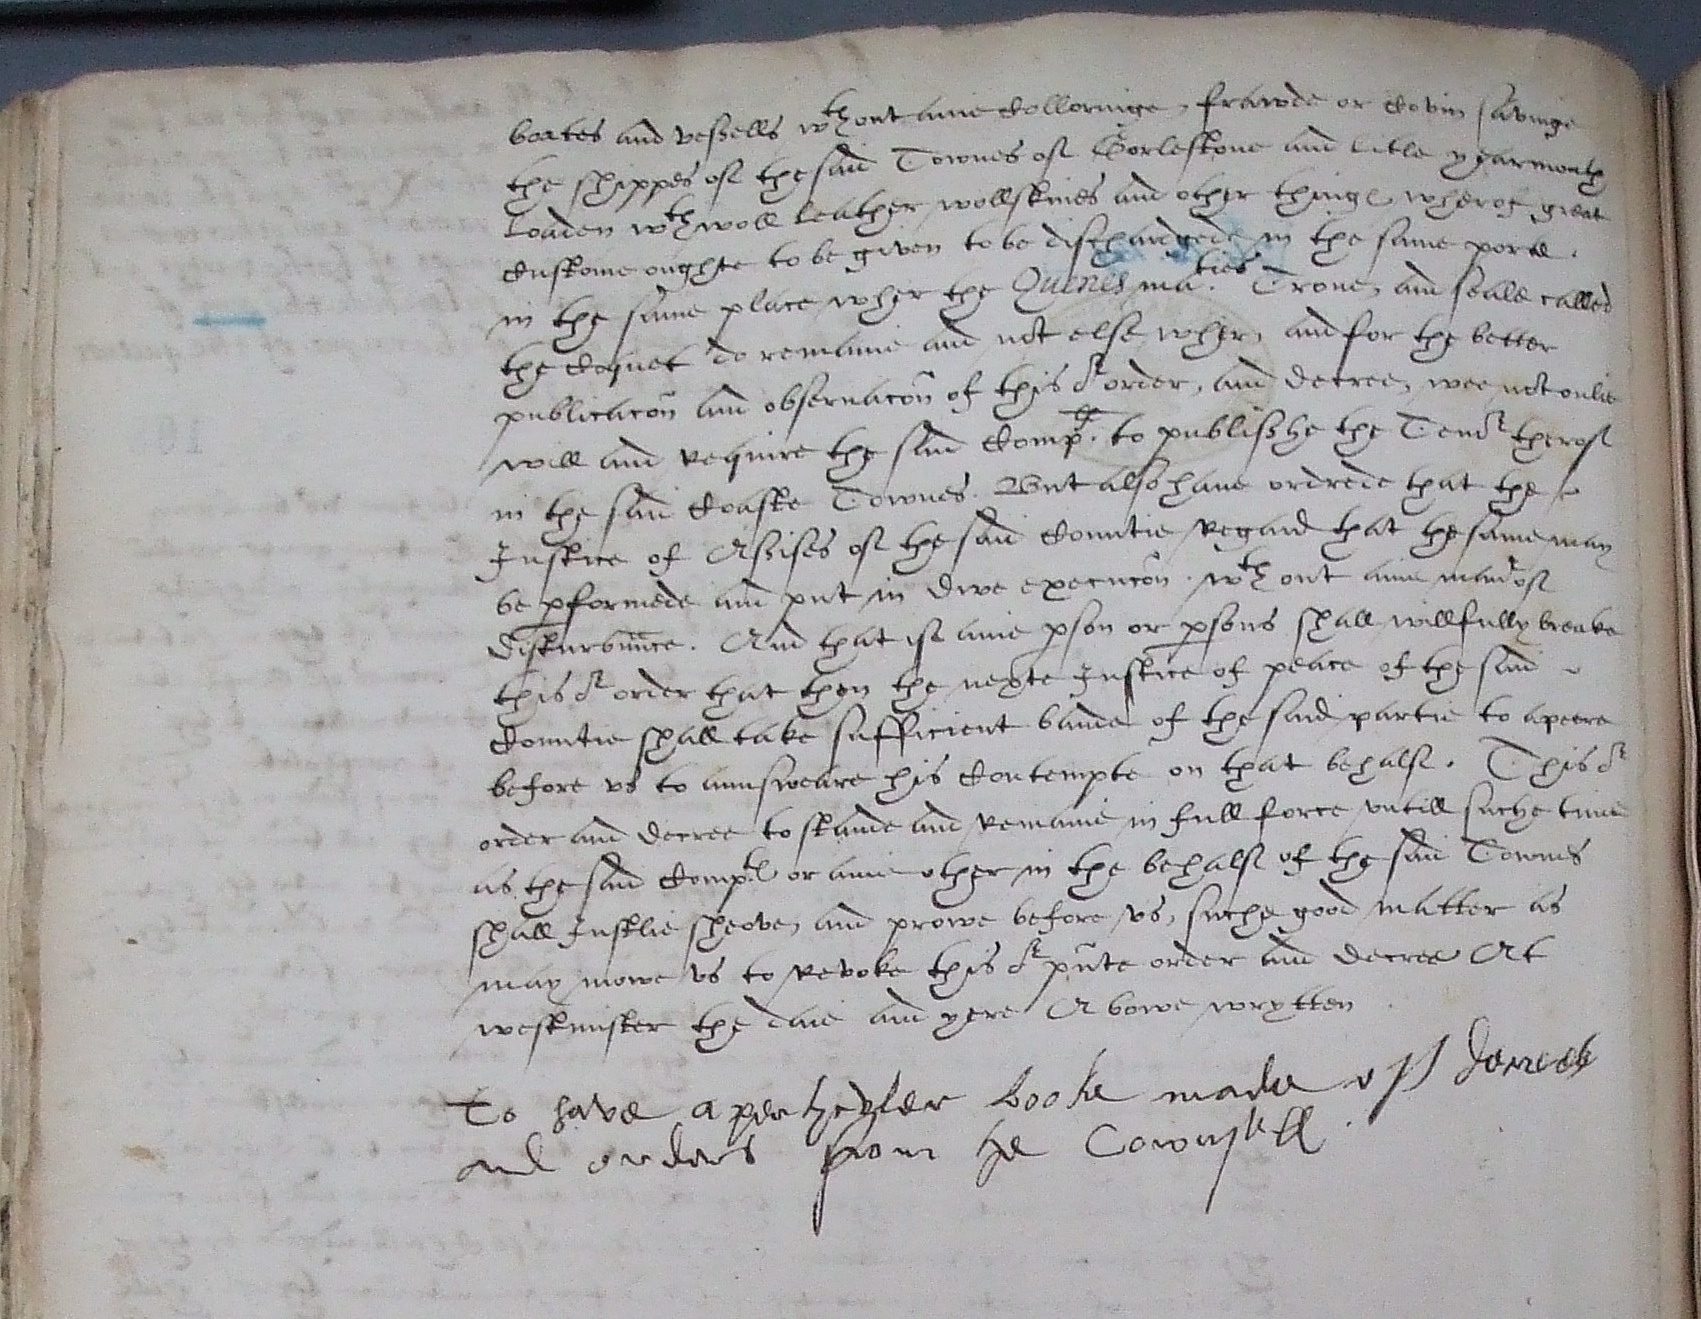 boates and vessells wthout anie collorinige, frawde or Covin savinge
the shippes off the said Townes off Gorlestone and litle yearmouth
loaden wth woll leather wollskines and other things wherof great
custome oughte to be given to be dischardgede in the same porte.
in the same place wher the Quenes maties. Trone, and seale called
the coquet do remaine and not else wher, and for the better
publicacõn and observacõn of this or order, and decree, wee not onlie
will and require the said Complte. to publishe the Tenor theroff
in the said Coaste Townes. But also have ordrede that the
Justice of Assises off the said Countie regard that the same may
be pformede and put in dwe execucõn. wthout anie maner off
disturbance. And that iff anie pson or psons shall willfully breake
this or order that then the nexte Justice of peace of the said
Countie shall take sufficient bande of the said partie to apeere
before vs to aunsweare his Contempte on that behalff. This or
order and decree to stande and remaine in full force vntill suche time
as the said Complt or anie other in the behalff of the said Townes
shall Justlie sheowe, and prowe before vs, suche good matter as
may mowe vs to revoke this or pñte order and decree At
westminster the daie and yere Abowe wrytten
To have a pertyculer booke made off decrees
and orders from the Counsell.